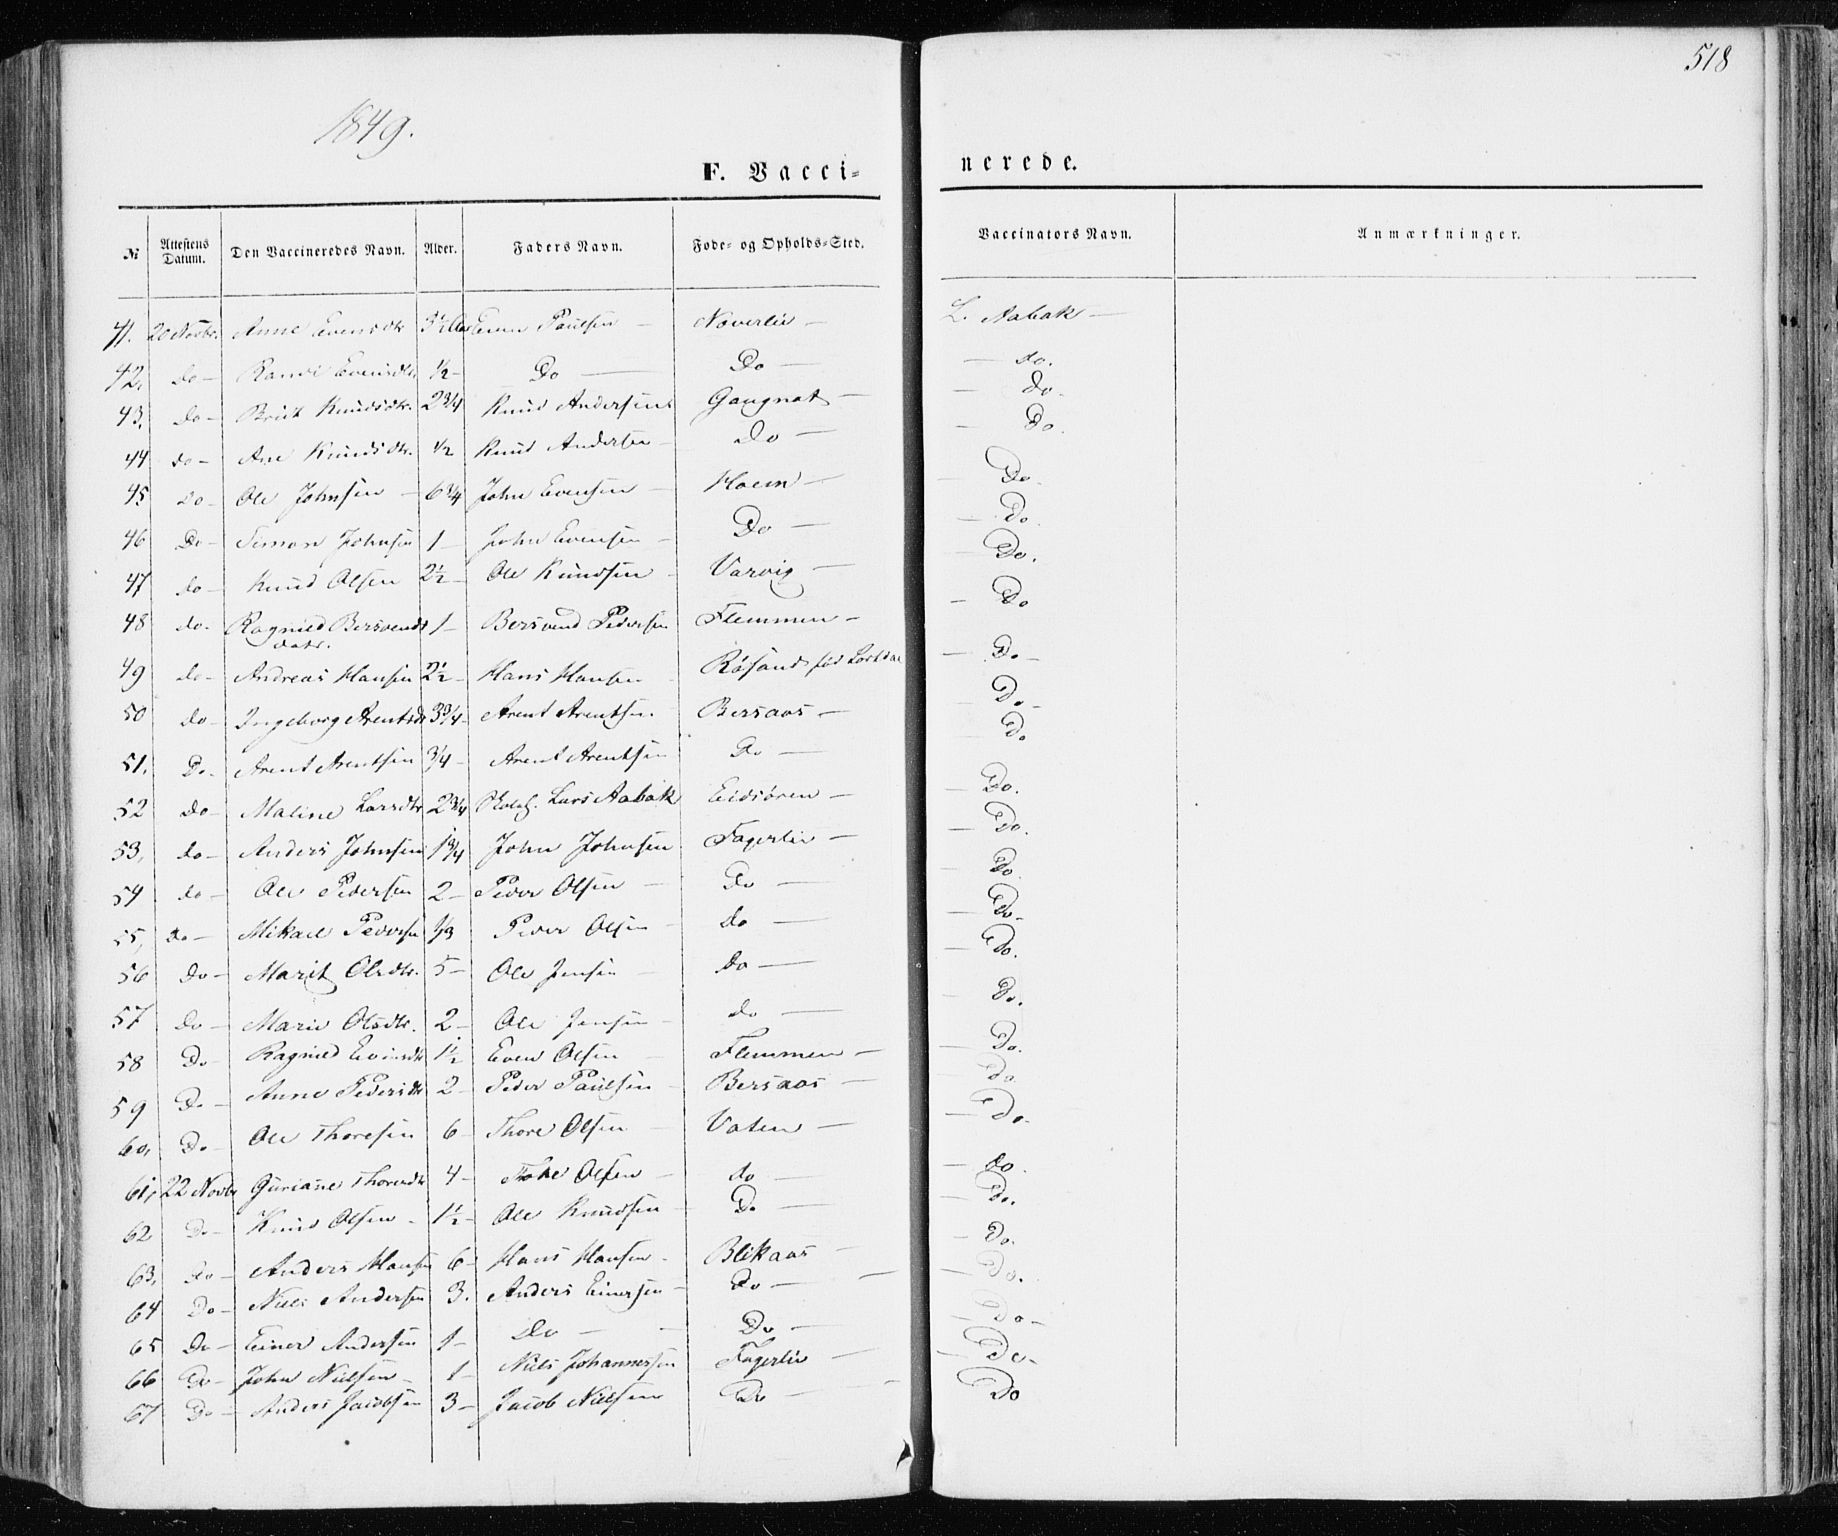 518
1849.
F. Vacci=
nerede.
№ Attestens Datum. Den Vaccineredes Navn. Alder. Faders Navn. Føde- og Opholds-Sted. Vaccinators Navn. Anmærkninger.
41. 20 Novbr. Anne Evensdtr 3½ Aar Even Paulsen — Noverlie — L. Aabak —
42, do — Randi Evensdtr. ½ — Do — Do — — do.
43, do — Brit Knudsdtr. 2¾ Knud Andersen Gaugnat — — do.
44 do — Ane Knudsdtr. ½ Knud Andersen — do — — Do.
45 do — Ole Johnsen — 6¾ John Evensen — Hoem — — Do.
46 Do — Simon Johnsen 1 — John Evensen — Do — — Do.
47 do — Knud Olsen 2½ — Ole Knudsen — Varvig — — Do.
48 do. Ragnild Bersvends 1 — Bersvend Pedersen Flemmen — — Do
datr.
49 do — Andreas Hansen 2½ — Hans Hansen Røsand, fød — Do —
50 do — Ingeborg Arentsdtr 3¾ — Arent Arentsen Bersaas — — Do —
51, Do. Arent Arentsen ¾ — Arent Arentsen Do — — Do
52 do — Maline Larsdtr 2¾ Lars Aabak Eidsøren — — Do.
53, do — Anders Johnsen 1¾ John Johnsen Fagerlie — — Do.
54 do — Ole Pedersen 2 — Peder Olsen — Do — — Do.
55, Do — Mikael Pedersen ⅓ Peder Olsen — do — — Do —
56 do — Marit Olsdtr. 5 — Ole Jensen — do — — Do.
57 do — Marie Olsdtr. 2 — Ole Jensen — do — — Do.
58 Do — Ragnild Evensdtr 1½ Even Olsen — Flemmen — — Do.
59 Do — Anne Pedersdtr 2 — Peder Paulsen — Bersaas — — Do
60, Do — Ole Thoresen 6 — Thore Olsen — Vaten — — Do.
61, 22 Novbr Guriane Thoresdtr 4 — Thore Olsen — do — — do.
62 Do — Knud Olsen — 1½ — Ole Knudsen — Do — — Do.
63, do — Anders Hansen 6 — Hans Hansen — Blikaas — — Do.
64 Do — Niels Andersen 3. Anders Einersen — Do — — Do.
65 Do — Einer Andersen 1 — Do — — Do — — Do —
66 Do — John Nielsen — 1 — Niels Johannessen Fagerlie — — Do —
67 Do — Anders Jacobsen 3 — Jacob Nielsen Do — — Do